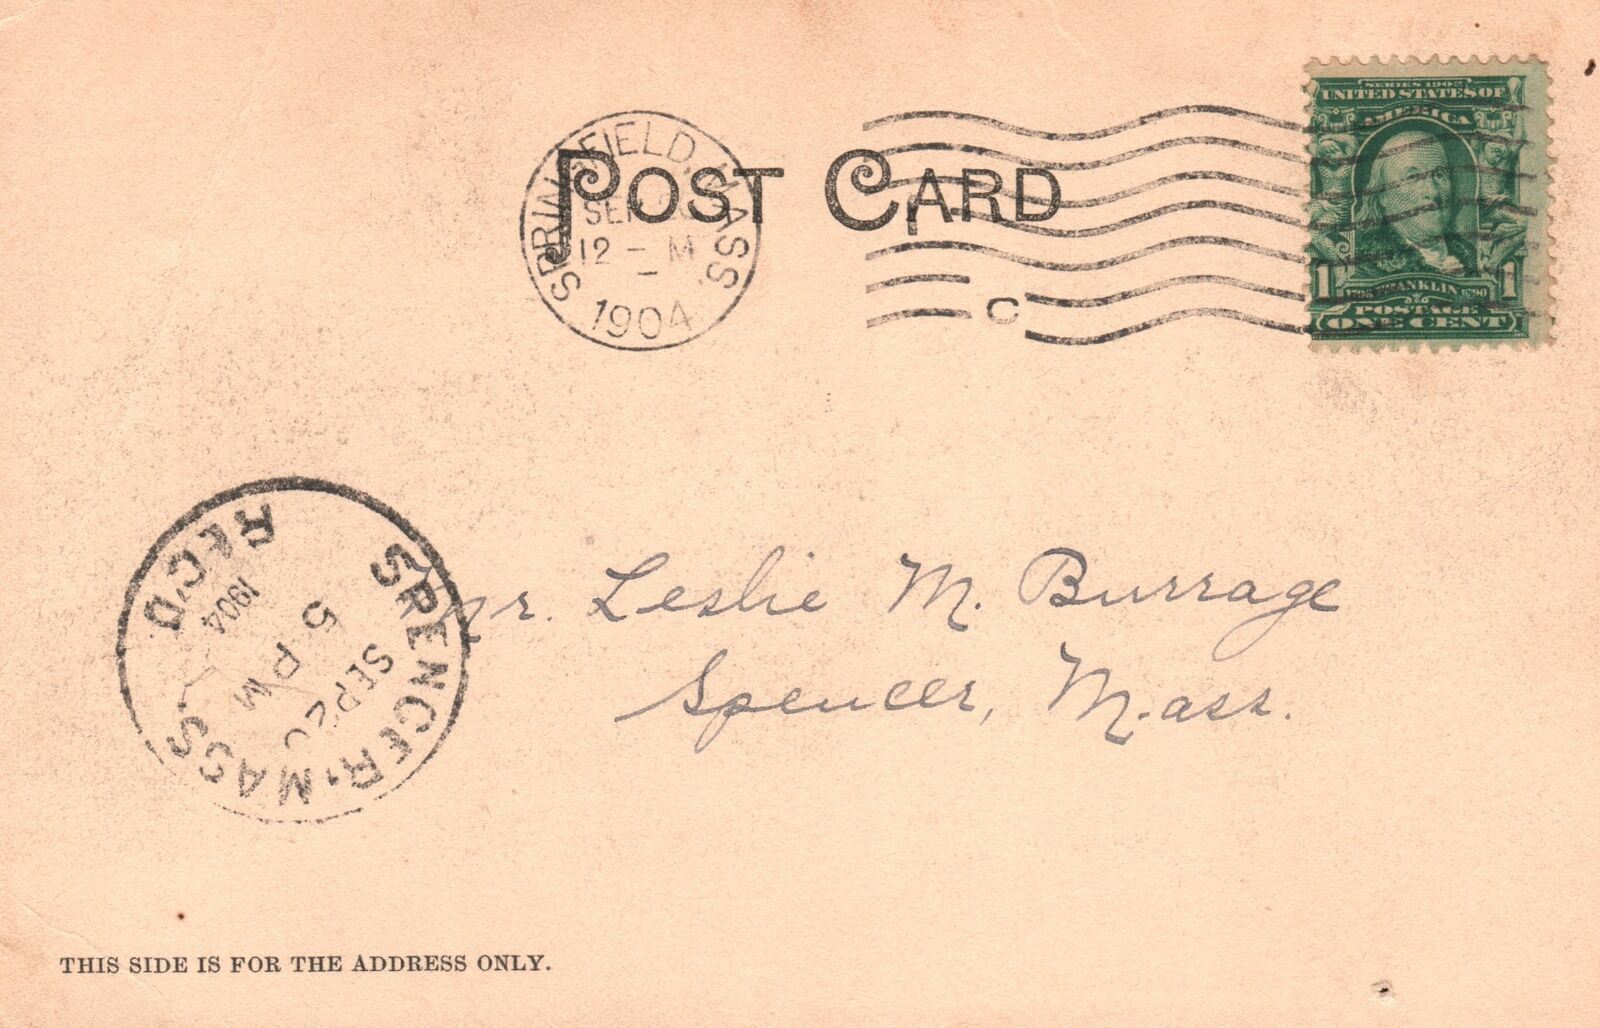 POST CARD
SPRINGFIELD, MASS.
SEP
12 - M
1904
C
SERIES 1902
UNITED STATES OF
AMERICA
1 1
FRANKLIN
POSTAGE
ONE CENT
SPENCER, MASS.
SEP 20
5 PM
1904
REC'D.
Mr. Leslie M. Burrage
Spencer, Mass.
THIS SIDE IS FOR THE ADDRESS ONLY.